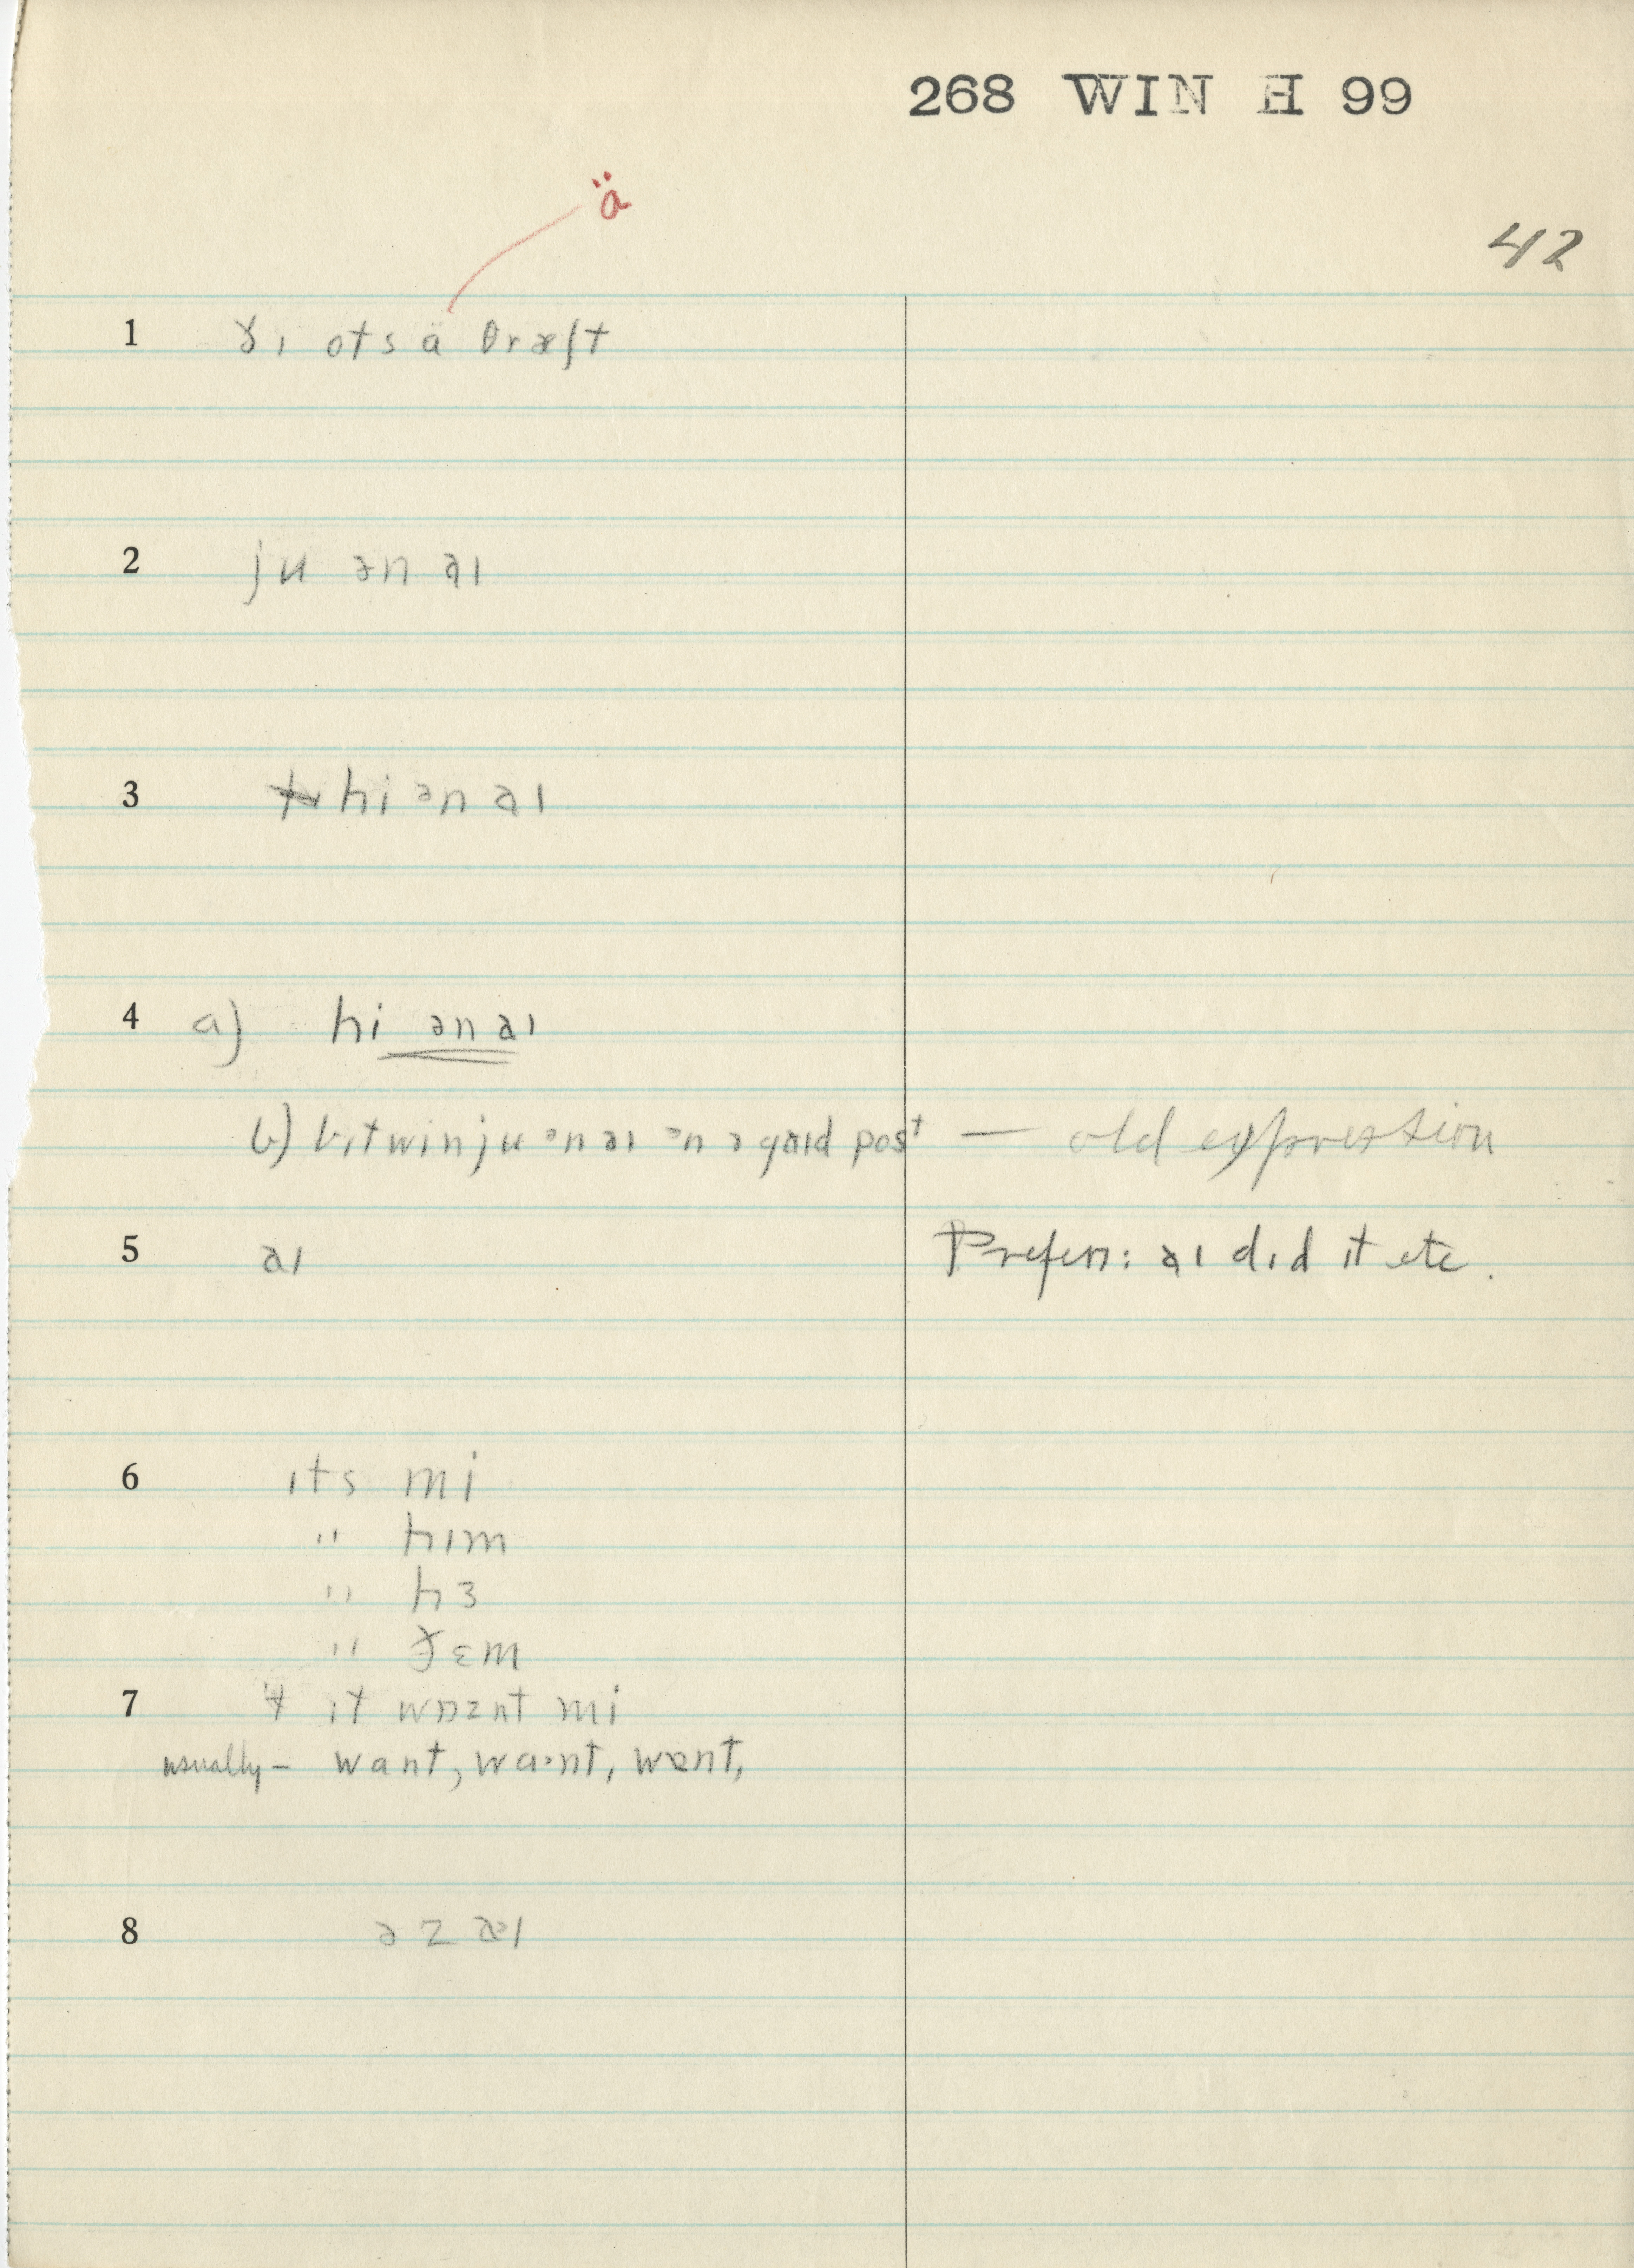 268 WIN H 99
ä
42
1 ðɪ ots ä θræʃt
2 ju ən aɪ
3 hi ən aɪ
4 a) hi ən aɪ
b) bɪtwin ju ən aɪ ən ə post — old expression
5 aɪ Prefers: aɪ dɪd it etc.
6 ɪts mi
" hɪm
" hɜ
" ðɛm
7 ɪt wɒznt mi
usually – want, wa·nt, wɒnt,
8 əz aɪ